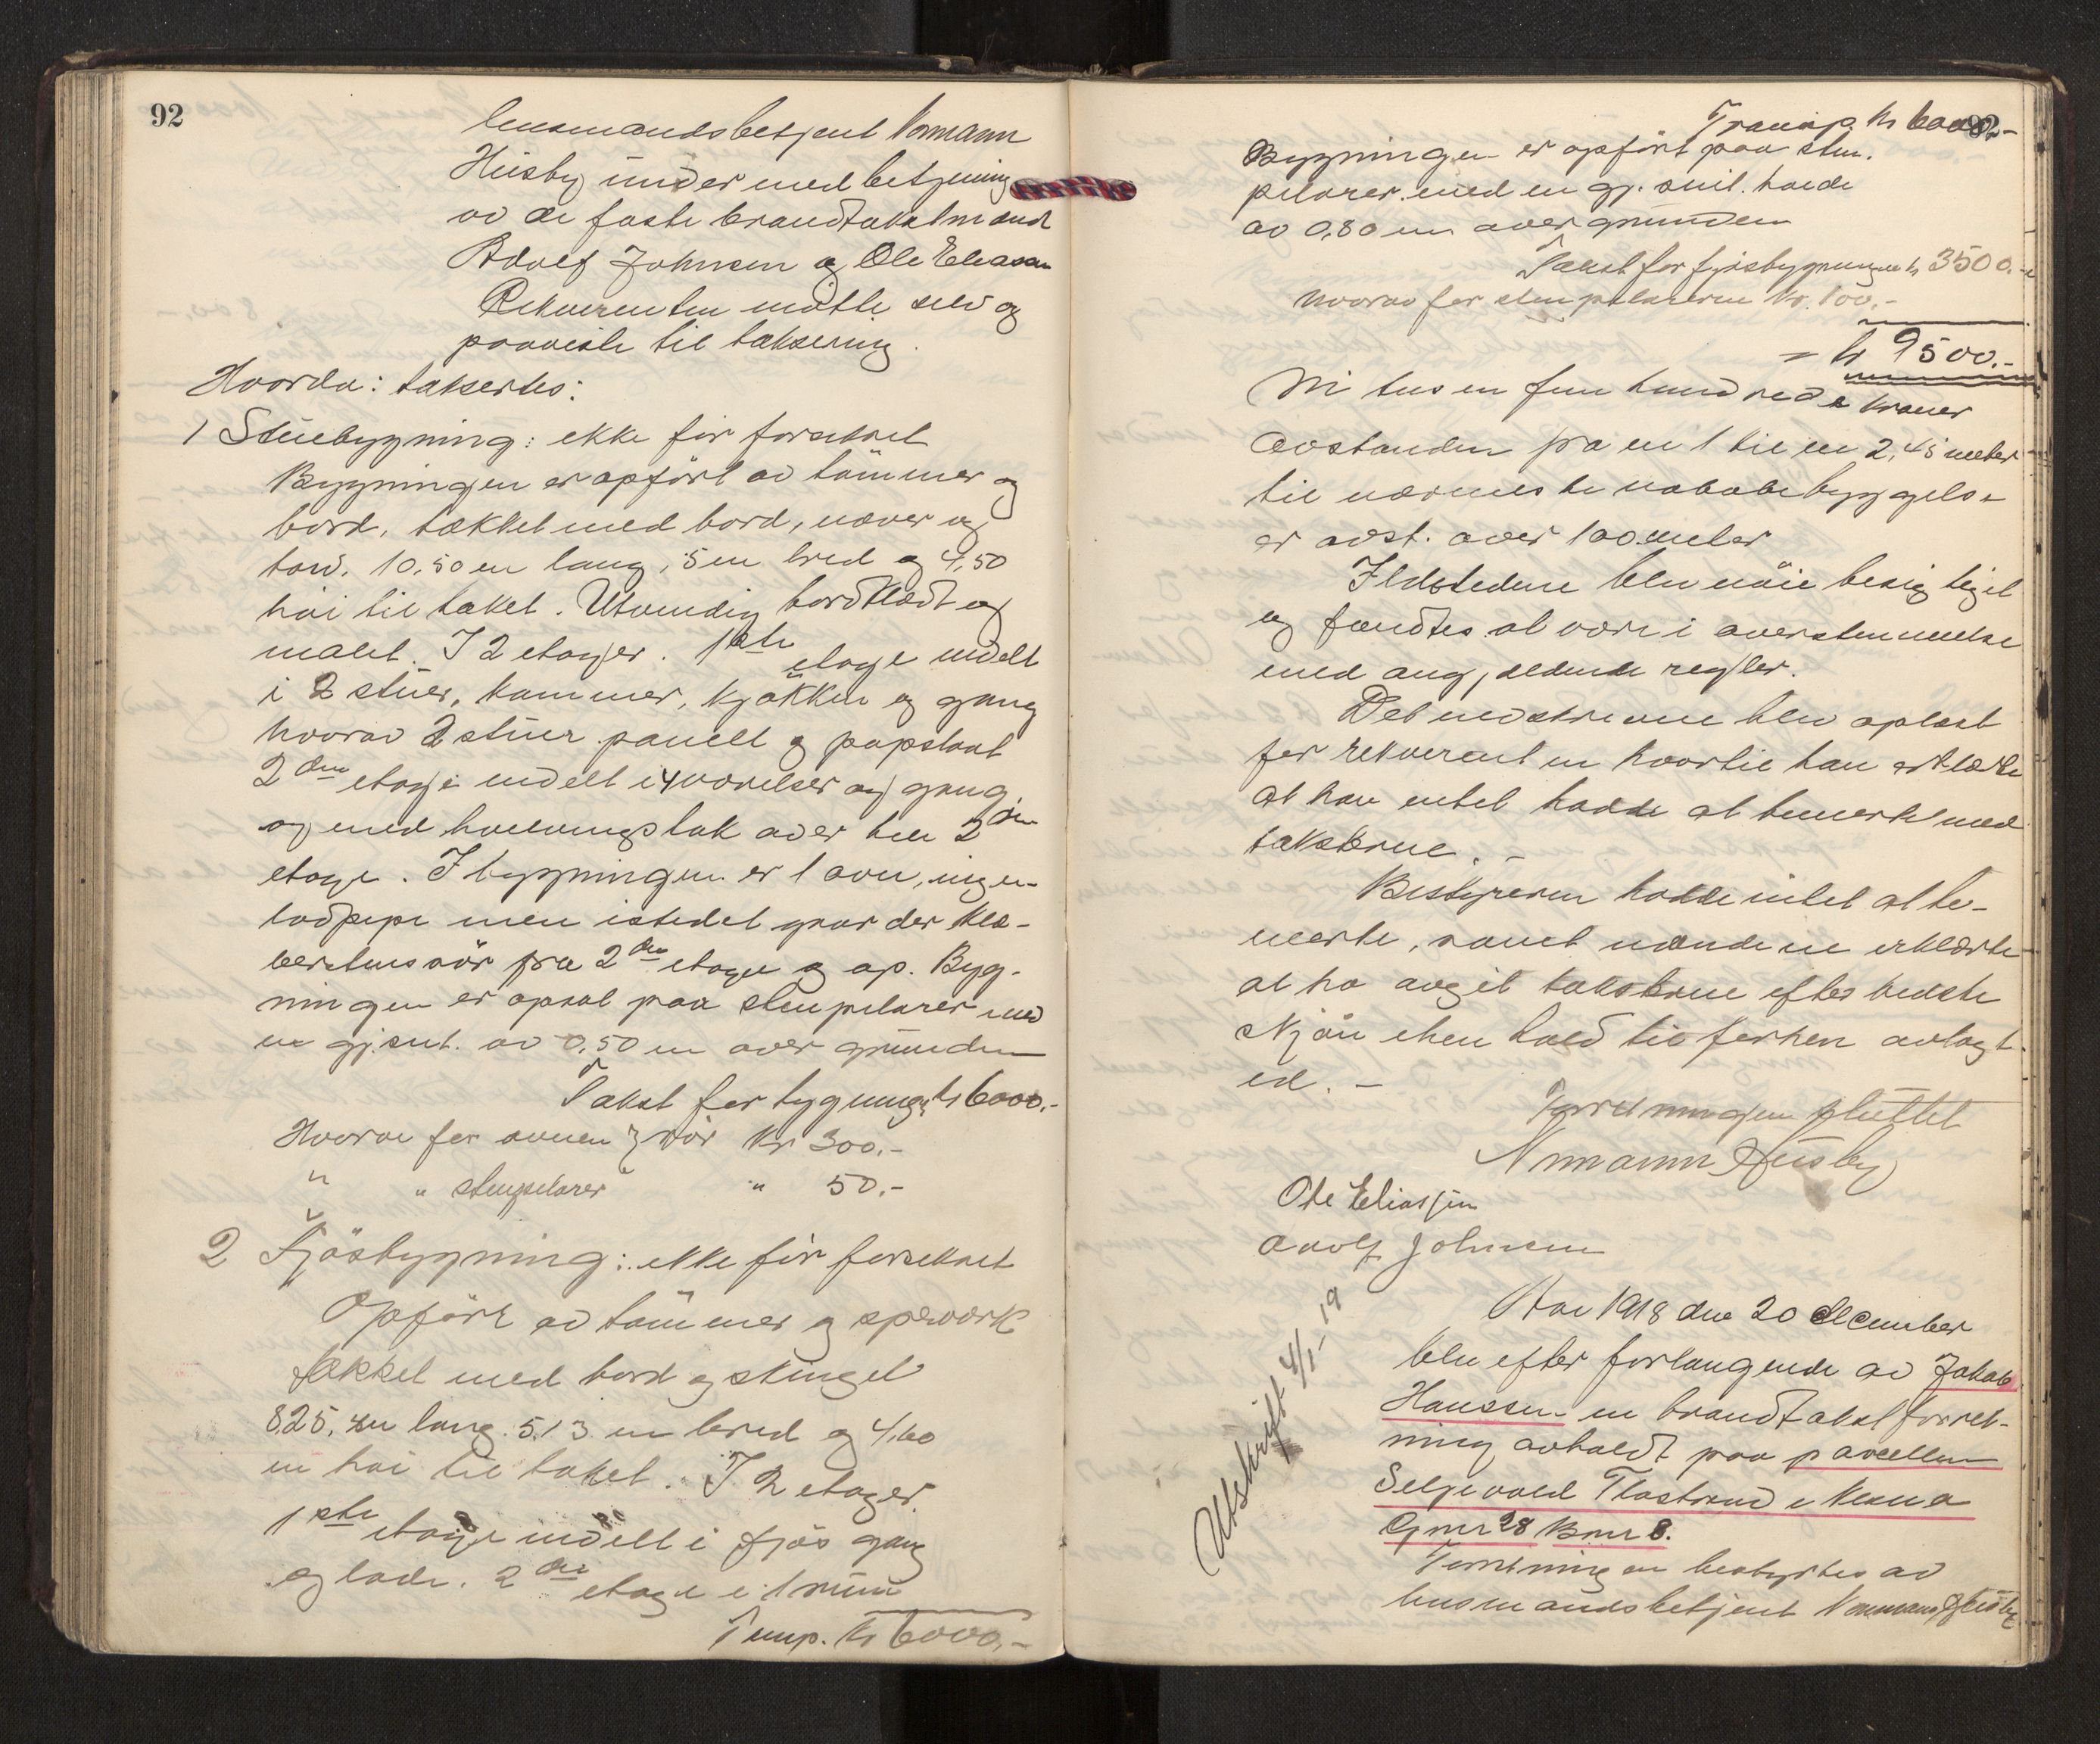 92
lensmandsbetjent Normann
Husby under medbetjening
av de faste brandtakstmænd
Adolf Johnsen og Ole Eliasen
Rekvirenten mötte selv og
paaviste til taksering.
Hvorda: taksertes:
1 Stuebygning: ikke för forsikret
Bygningen er opfört av tömmer og
bord, tækket med bord, næver og
torv. 10,50 m lang, 5 m bred og 4,50
höi til taket. Utvendig bordklædt og
malet. I 2 etager. 1ste etage indelt
i 2 stuer, kammer, kjökken og gang
hvorav 2 stuer panelt og papslaat
2den etage indelt i 4 værelser og gang
og med hvelvingstak over hele 2den
etage. I bygningen er 1 ovn, ingen
lodpipe men istedet gaar der kle-
berstensrör fra 2den etage og op. Byg-
ningen er opsat paa stenpilarer med
en gj.snt. av 0,50 m over grunden
Takst for bygning kr 6000.-
Hvorav for ovnen & rör Kr 300.-
" " stenpilarer " 50.-
2 Fjösbygning: ikke för forsikret
Opfört av tömmer og spærverk
tækket med bord og skingel
8,25 m lang. 5,13 m bred og 4,60
m höi til taket. I 2 etager.
1ste etage indelt i fjös gang
og lade. 2den etage i 1 rum
Transp. Kr 6000.-
92
Transp. Kr 6000.-
Bygningen er opfört paa sten.
pilarer med en gj. snit. höide
av 0,80 m over grunden
Takst for fjösbygningen kr 3500.-
hvorav for stenpilarerne Kr. 100.-
= kr 9500.-
Ni tusen fem hundrede kroner
Avstanden fra nr 1 til nr 2, 45 meter
til nærmeste nabobebyggelse
er avst. over 100 meter
Ildstedene blev nöie besigtiget
og fandtes at være i overstemmelse
med ang, jeldende regler.
Det nedskrevne blev oplæst
for rekvirenten hvortil han erklærte
at han intet hadde at bemerke med
taksterne. -
Bestyreren hadde intet at be-
merke, samt mændene erklærte
at ha avgit taksterne efter bedste
skjön i henhold til forhen avlagt
ed. -
Forretningen sluttet
Normann Husby
Ole Eliassen
Adolf Johnsen
Utskrift 4/1-19
Aar 1918 den 20 december
blev efter forlangende av Jakob
Hanssen en brandtakstforret-
ning avholdt paa parcellen
Selgevold Flostrand i Nesna
Gnr 28 Bnr 8.
Forretningen bestyrtes av
lensmandsbetjent Normann Husby